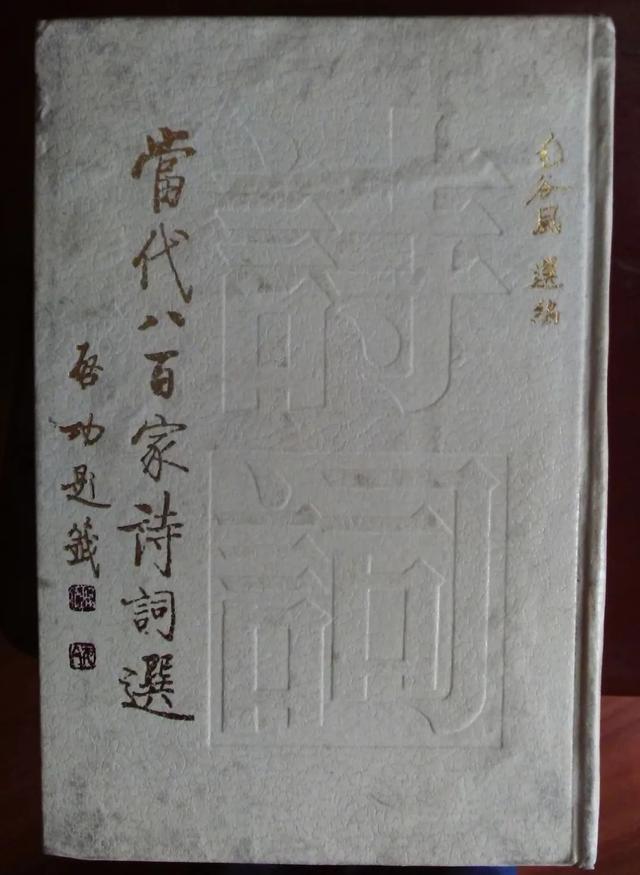 毛谷風 選編
詩詞
當代八百家詩詞選
啓功題籤